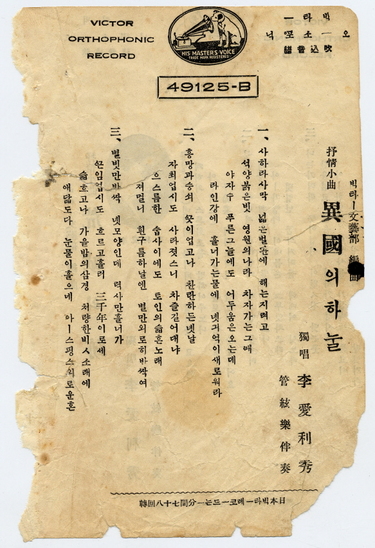 VICTOR
ORTHOPHONIC
RECORD
HIS MASTER'S VOICE
빅타ー
오ー소또닉
吹込音譜
49125-B
빅타ー文藝部 編曲
抒情小曲 異國의하눌
獨唱 李愛利秀
管絃樂伴奏
一、사하라사막 넓은벌판에 해는지려고
석양붉은빗 영원의나라 차자가는그때
야자수 푸른그늘에도 어두움은오는데
라인강에 흘너가는물에 녯거억이새로워라
二、흥망과승쇠 끗이업고나 찬란하든녯날
자최업시도 사라젓스니 차즐길어대냐
으스름한 숩사이에도 토인의슯흔노래
저멀니 흰구름하날엔 별만외로히바싹여
三、별빗만반싹 녯모양인데 력사만흘너가
쓴임업시도 흐르고흘러 三千年이로세
슯흐고나 가을밤의삼경 처량한비ㅅ소래에
애닯도다 눈물이흘으네 아ー스핑스외로운혼
日本빅타ー레코ー드는一分間七十八回轉